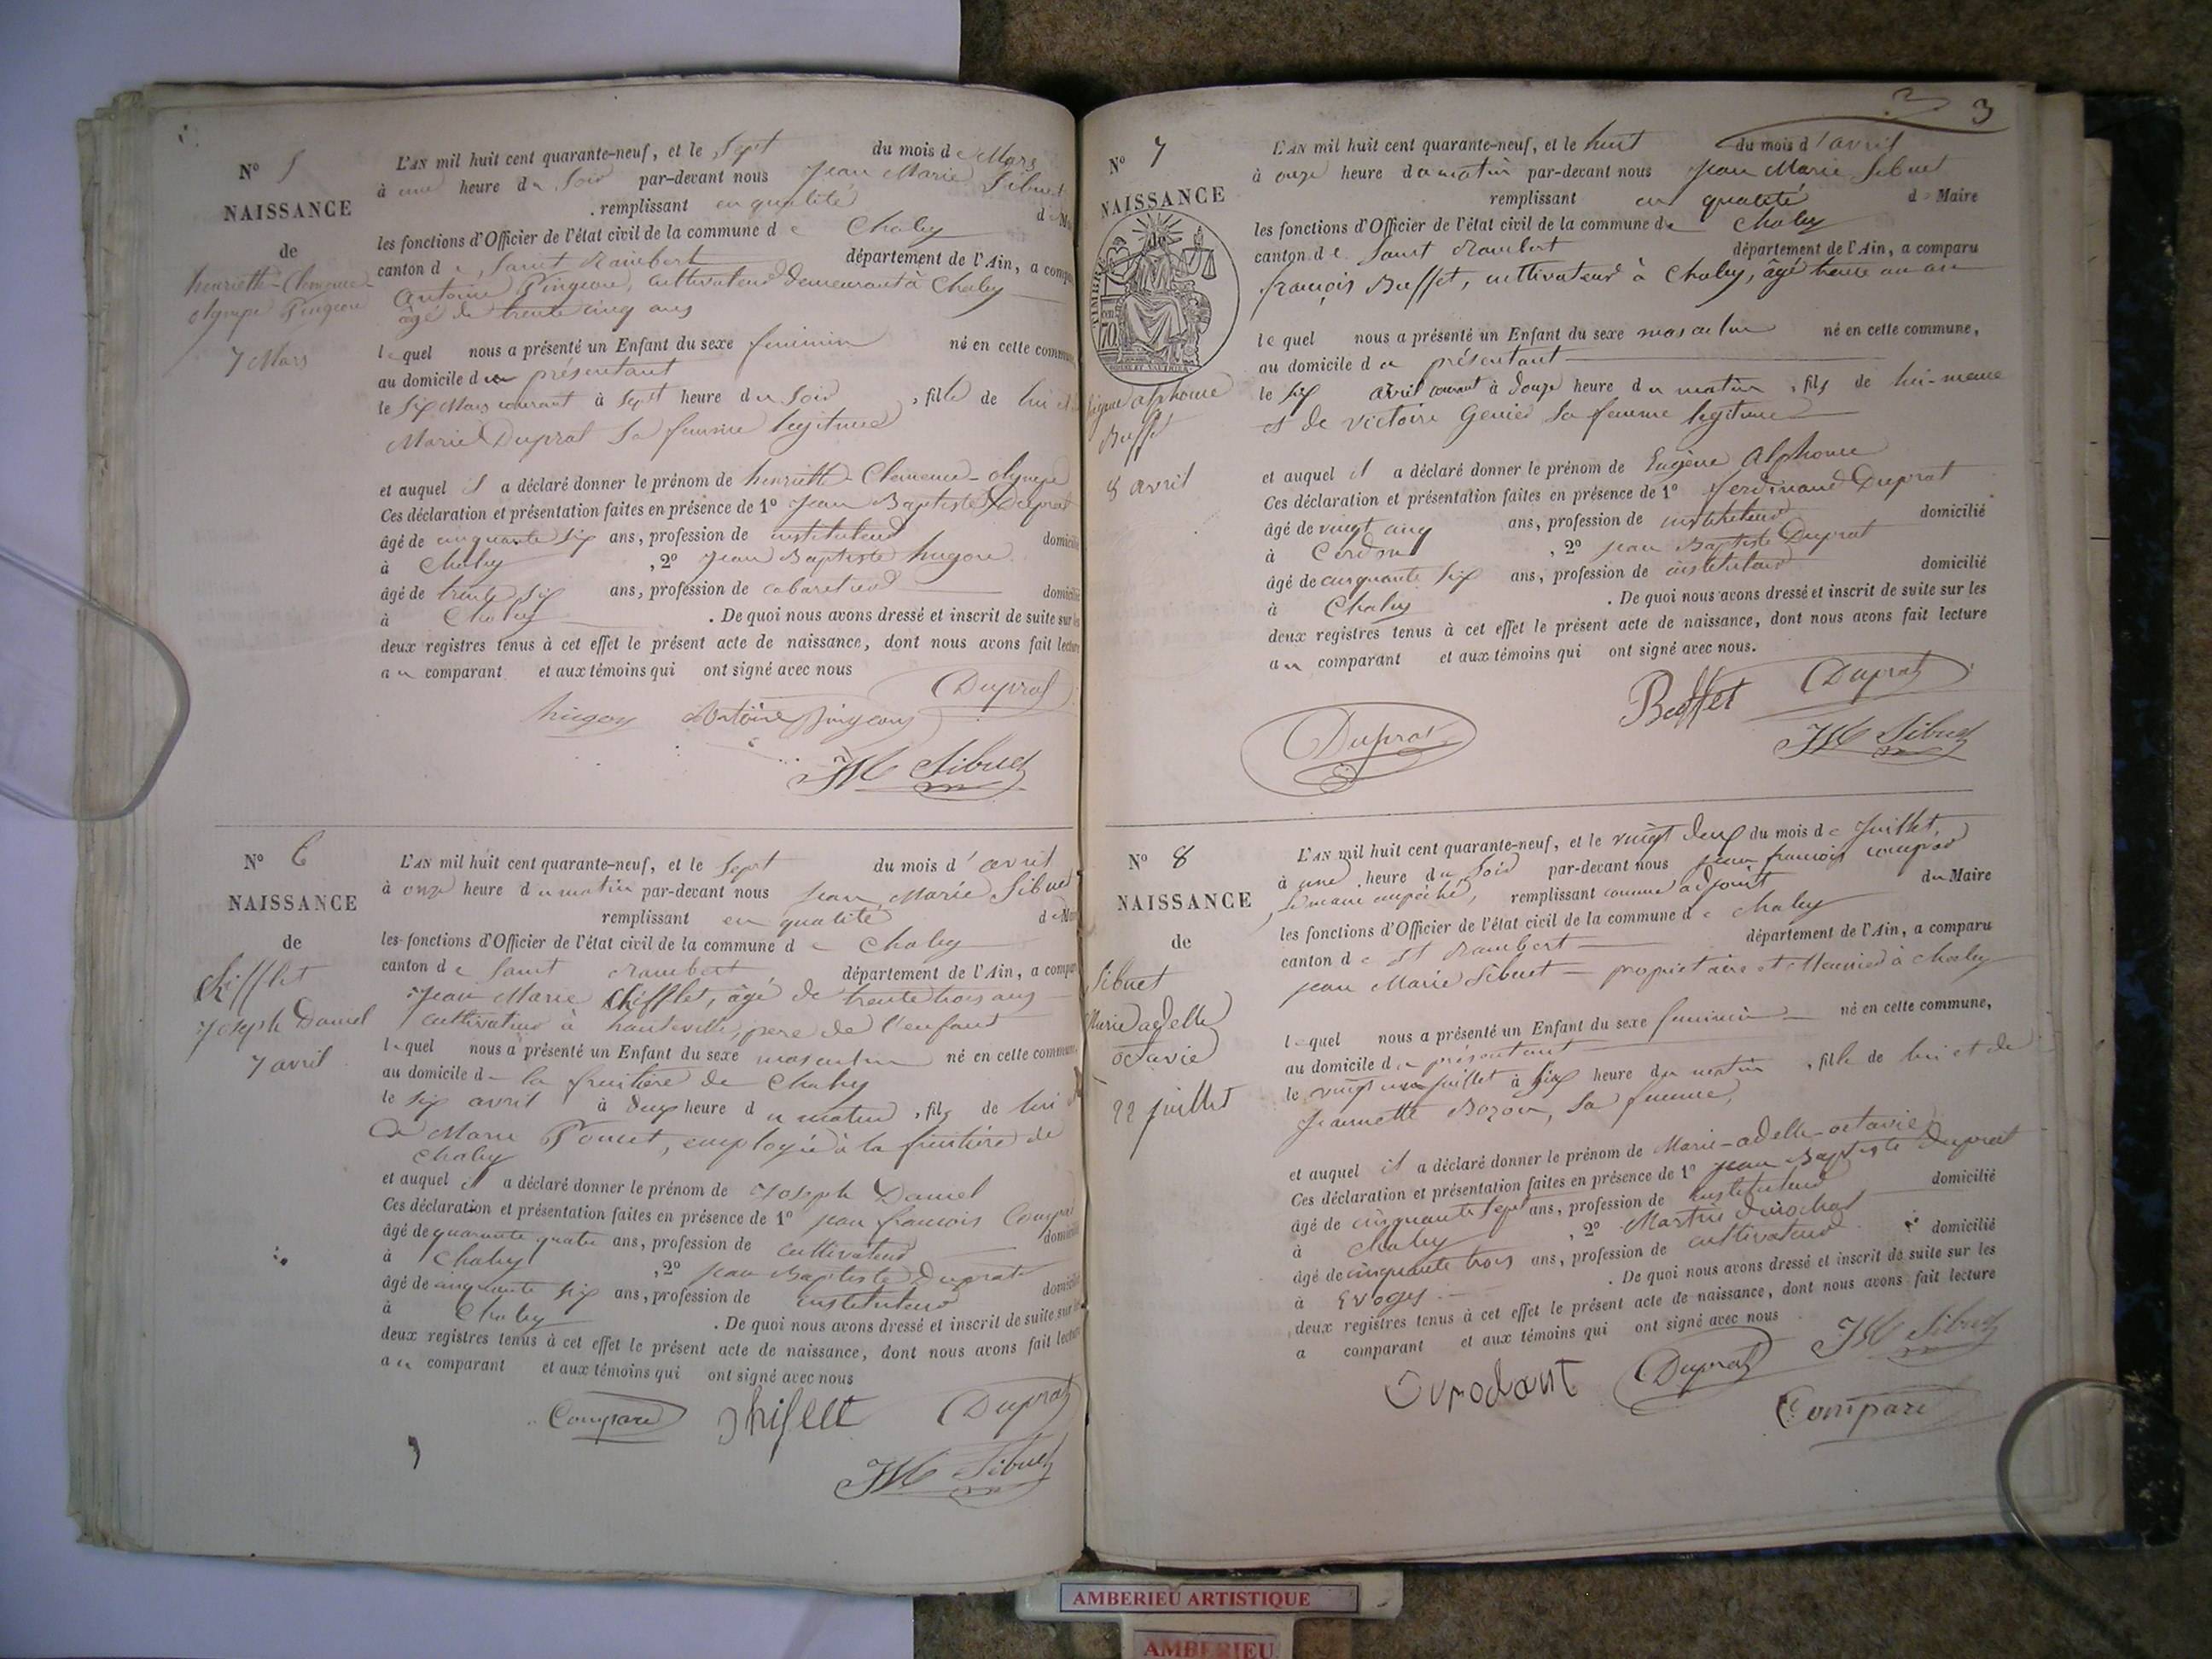 N° 5
NAISSANCE
de
henriette-Clemence-
olympe Pingeon
7 Mars
L'AN mil huit cent quarante-neuf, et le Sept du mois de Mars
à une heure du Soir par-devant nous Jean Marie Sibuet
remplissant en qualité de
les fonctions d'Officier de l'état civil de la commune de Chaley
canton de Saint Rambert département de l'Ain, a comparu
Antoine Pingeon, cultivateur demeurant à Chaley
âgé de trente cinq ans
lequel nous a présenté un Enfant du sexe feminin né en cette commune,
au domicile du présentant
le Six Mars courant à Sept heure du Soir, fille de lui et
Marie Duprat Sa femme legitime
et auquel il a déclaré donner le prénom de henriette-Clemence-olympe
Ces déclaration et présentation faites en présence de 1° Jean Baptiste Duprat
âgé de cinquante Six ans, profession de instituteur domicilié
à Chaley, 2° Jean Baptiste hugon
âgé de trente Six ans, profession de cabaretier domicilié
à Chaley. De quoi nous avons dressé et inscrit de suite sur les
deux registres tenus à cet effet le présent acte de naissance, dont nous avons fait lecture
au comparant et aux témoins qui ont signé avec nous
Duprat
hugon Antoine Pingeon
JM Sibuet
N° 6
NAISSANCE
de
Chifflet
Joseph Daniel
7 avril
L'AN mil huit cent quarante-neuf, et le Sept du mois d'avril
à onze heure du matin par-devant nous Jean Marie Sibuet
remplissant en qualité de
les fonctions d'Officier de l'état civil de la commune de Chaley
canton de Saint Rambert département de l'Ain, a comparu
Jean Marie Chifflet, âgé de trente trois ans
cultivateur à hauteville, pere de l'enfant
lequel nous a présenté un Enfant du sexe masculin né en cette commune,
au domicile d la fruitière de Chaley
le Six avril à deux heure du matin, fils de lui
de Marie Poncet, employé à la fruitière de
Chaley
et auquel il a déclaré donner le prénom de Joseph Daniel
Ces déclaration et présentation faites en présence de 1° jean francois
âgé de quarante quatre ans, profession de cultivateur domicilié
à Chaley, 2° Jean Baptiste Duprat
âgé de cinquante Six ans, profession de instituteur domicilié
à Chaley. De quoi nous avons dressé et inscrit de suite sur les
deux registres tenus à cet effet le présent acte de naissance, dont nous avons fait lecture
au comparant et aux témoins qui ont signé avec nous
Duprat
JM Sibuet
3
N° 7
NAISSANCE
de
Eugene alphonse
Buffet
8 avril
L'AN mil huit cent quarante-neuf, et le huit du mois d'avril
à onze heure du matin par-devant nous Jean Marie Sibuet
remplissant en qualité de Maire
les fonctions d'Officier de l'état civil de la commune de Chaley
canton de Saint Rambert département de l'Ain, a comparu
françois Buffet, cultivateur à Chaley, âgé trente un an
lequel nous a présenté un Enfant du sexe masculin né en cette commune,
au domicile du présentant
le Six avril courant à douze heure du matin, fils de lui-meme
et de victoire Genier Sa femme legitime
et auquel il a déclaré donner le prénom de Eugène Alphonse
Ces déclaration et présentation faites en présence de 1° ferdinand Duprat
âgé de vingt cinq ans, profession de instituteur domicilié
à Cerdon, 2° Jean Baptiste Duprat
âgé de cinquante Six ans, profession de instituteur domicilié
à Chaley. De quoi nous avons dressé et inscrit de suite sur les
deux registres tenus à cet effet le présent acte de naissance, dont nous avons fait lecture
au comparant et aux témoins qui ont signé avec nous.
Buffet Duprat
Duprat JM Sibuet
N° 8
NAISSANCE
de
Sibuet
Marie adelle
octavie
22 juillet
L'AN mil huit cent quarante-neuf, et le vingt deux du mois de Juillet,
à une heure du Soir par-devant nous jean francois
le maire empéché, remplissant comme adjoint du Maire
les fonctions d'Officier de l'état civil de la commune de Chaley
canton de St Rambert département de l'Ain, a comparu
jean Marie Sibuet propriétaire et Meunier à Chaley
lequel nous a présenté un Enfant du sexe feminin né en cette commune,
au domicile du présentant
le vingt un juillet à Six heure du matin, fille de lui et de
Jeannette Bozon, Sa femme,
et auquel il a déclaré donner le prénom de Marie-adelle-octavie
Ces déclaration et présentation faites en présence de 1° jean Baptiste Duprat
âgé de cinquante Sept ans, profession de instituteur domicilié
à Chaley, 2° Martin
âgé de cinquante trois ans, profession de cultivateur domicilié
à Evoges. De quoi nous avons dressé et inscrit de suite sur les
deux registres tenus à cet effet le présent acte de naissance, dont nous avons fait lecture
a comparant et aux témoins qui ont signé avec nous
Duprat JM Sibuet
AMBERIEU ARTISTIQUE
AMBERIEU